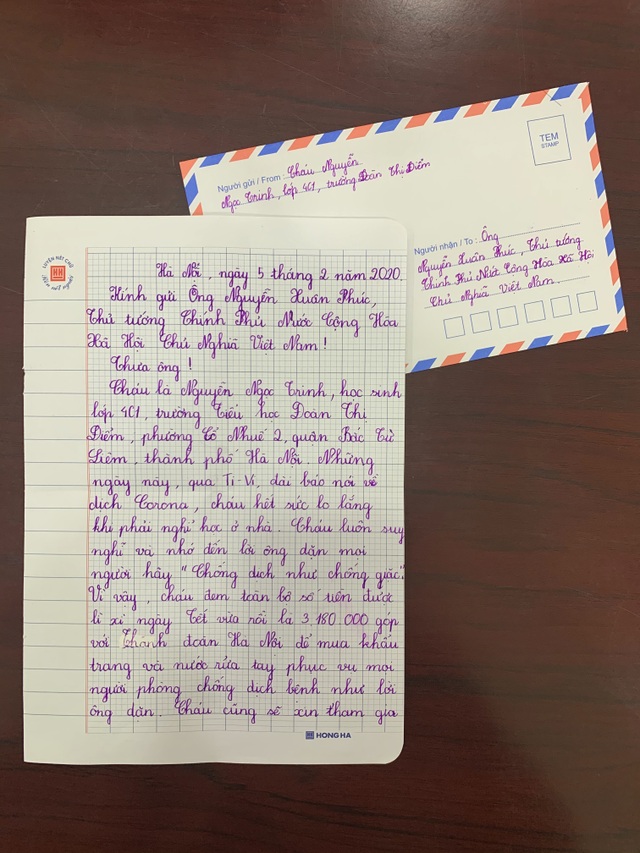 TEM
STAMP
Người gửi / From : Cháu Nguyễn
Ngọc Trinh, lớp 4C1, trường Đoàn Thị Điểm
Người nhận / To : Ông
Nguyễn Xuân Phúc, Thủ tướng
Chính Phủ Nước Cộng Hòa Xã Hội
Chủ Nghĩa Việt Nam.
LUYỆN NÉT CHỮ
RÈN NẾT NGƯỜI
HH
Hà Nội, ngày 5 tháng 2 năm 2020
Kính gửi Ông Nguyễn Xuân Phúc,
Thủ tướng Chính Phủ Nước Cộng Hòa
Xã Hội Chủ Nghĩa Việt Nam !
Thưa ông !
Cháu là Nguyễn Ngọc Trinh, học sinh
lớp 4C1, trường Tiểu học Đoàn Thị
Điểm, phường Cổ Nhuế 2, quận Bắc Từ
Liêm, thành phố Hà Nội. Những
ngày này, qua Ti-Vi, đài báo nói về
dịch Corona, cháu hết sức lo lắng
khi phải nghỉ học ở nhà. Cháu luôn suy
nghĩ và nhớ đến lời ông dặn mọi
người hãy "Chống dịch như chống giặc".
Vì vậy, cháu đem toàn bộ số tiền được
lì xì ngày Tết vừa rồi là 3 180 000 góp
với Thành đoàn Hà Nội để mua khẩu
trang và nước rửa tay phục vụ mọi
người phòng chống dịch bệnh như lời
ông dặn. Cháu cũng sẽ xin tham gia
HH HONG HA